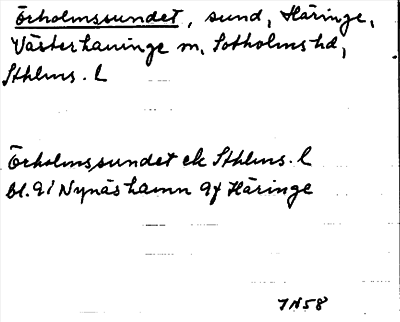 Örholmssundet, sund, Häringe,
Västerhaninge sn, Sotholms hd,
Sthlms. l
Örholmssundet ek Sthlms. l
bl. 91 Nynäshamn 9f Häringe
7 N 58